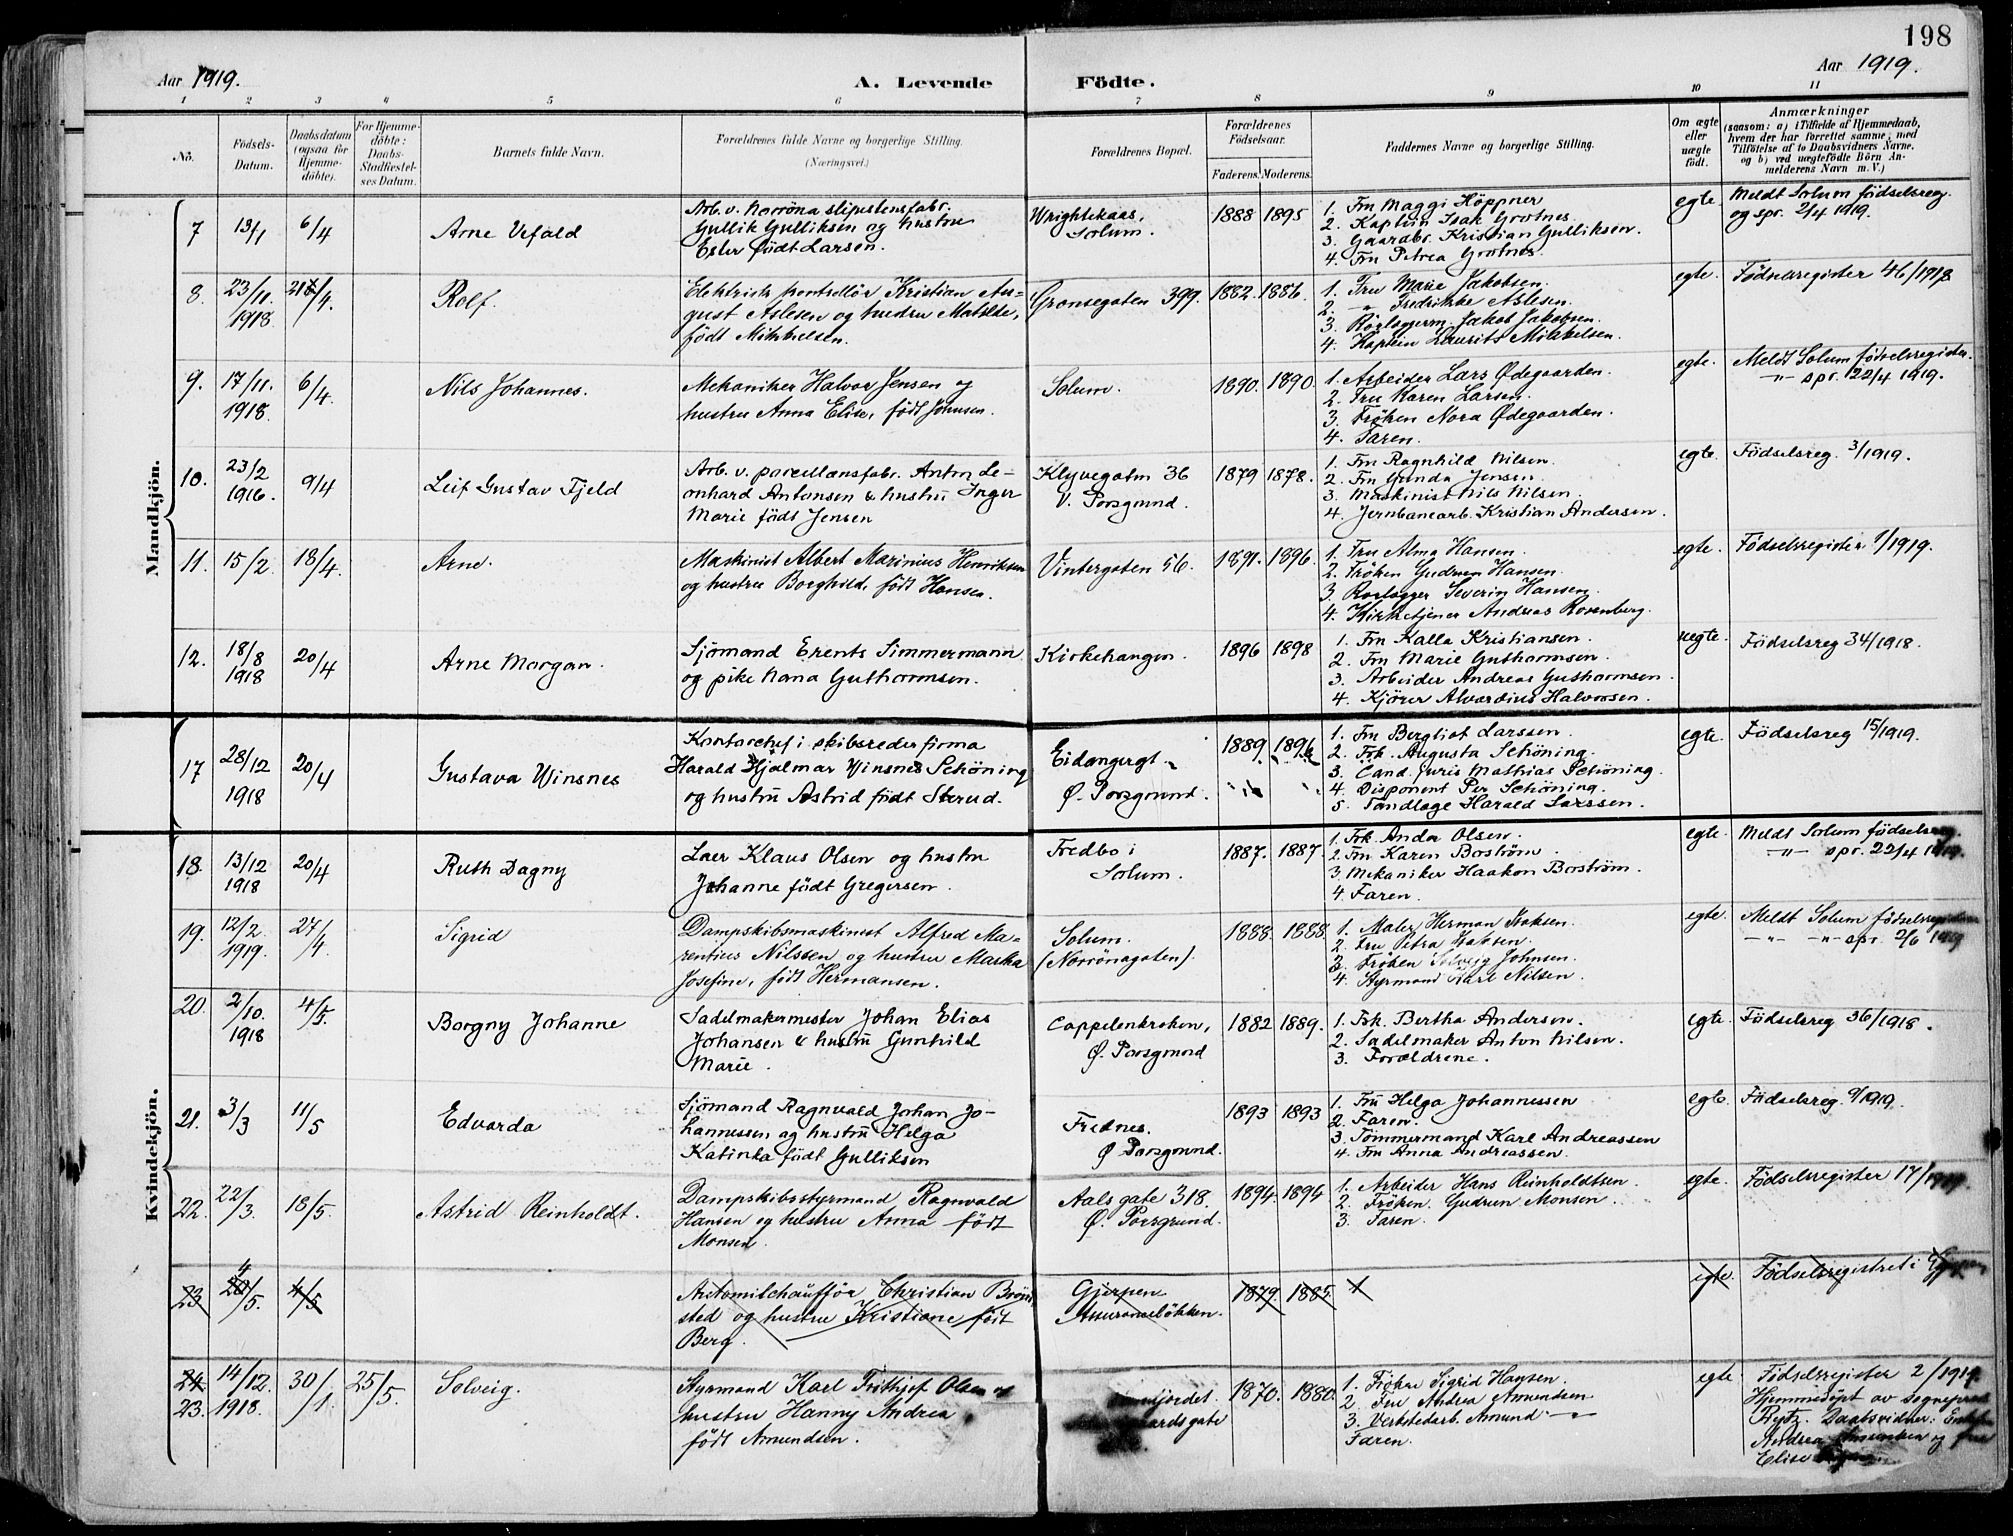 198
Aar 1919.
A. Levende Födte.
Aar 1919.
1 2 3 4 5 6 7 8 9 10 11
No.
Födsels-
Datum.
Daabsdatum
(ogsaa for
Hjemme-
döbte).
For Hjemme-
döbte:
Daabs-
Stadfæstel-
ses Datum.
Barnets fulde Navn.
Forældrenes fulde Navne og borgerlige Stilling.
(Næringsvei.)
Forældrenes Bopæl.
Forældrenes
Födselsaar.
Faderens. Moderens.
Faddernes Navne og borgerlige Stilling.
Om ægte
eller
uægte
født.
Anmærkninger
(saasom: a) i Tilfælde af Hjemmedaab,
hvem der har forrettet samme, med
Tilföielse af to Daabsvidners Navne,
og b) ved uægtefödte Börn An-
melderens Navn m. V.)
Mandkjön.
7 13/1 6/4
Arne Ufald
Arb. v. Norröna slipestensfabr.
Gullik Gulliksen og hustru
Ester født Larsen.
Wrightekaas,
Solum.
1888 1895
1. Fru Maggi Höppner
2. Kaptein Isak Grotnes
3. Gaardbr. Kristian Gulliksen.
4. Fru Petrea Grotnes.
egte.
Meldt Solum födselsreg.
og spr. 2/4 1919.
8. 23/11. 1918
Rolf.
Elektrisk kontrollör Kristian Au-
gust Aslesen og hustru Matilde,
født Mikkelsen.
Grønsegaten 399.
1882. 1886.
1. Fru Marie Jakobsen.
2. -"- Fredrikke Aslesen.
3. Rörlæggerm. Jakob Jakobsen.
4. Kaptein Laurits Mikkelsen.
egte.
Födselsregister 46/1918
9. 17/11. 1918. 6/4.
Nils Johannes.
Mekaniker Halvor Jensen og
hustru Anna Elise, født Johnsen.
Solum.
1890. 1890.
1. Arbeider Lars Ødegaarden.
2. Fru Karen Larsen.
3. Frøken Nora Ødegaarden.
4. Faren.
egte.
Meldt Solum födselsregister.
-"- spr. 22/4 1919.
10. 23/2 1916. 9/4
Leif Gustav Fjeld
Arb. v. porcellænsfabr. Anton Le-
onhard Antonsen & hustru Inger
Marie født Jensen
Klyvegaten 36
V. Porsgrund.
1879 1878.
1. Fru Ragnhild Nilsen.
2. Fru Gunda Jensen.
3. Maskinist Nils Nilsen.
4. Jernbanearb. Kristian Andersen.
egte.
Födselsreg. 3/1919.
11. 15/2. 18/4.
Arne.
Maskinist Albert Marinius Henriksen
og hustru Borghild, født Hansen.
Vintergaten 56.
1891. 1896.
1. Fru Alma Hansen.
2. Frøken Gudrun Hansen.
3. Rørlegger Severin Hansen.
4. Kirketjener Andreas Rosenberg.
egte.
Födselsregister 1/1919.
12. 18/8 1918 20/4
Arne Morgan.
Sjömand Erents Simmermann
og pike Nana Guthormsen.
Kirkehaugen.
1896 1898
1. Fru Kalla Kristiansen.
2. Fru Marie Guthormsen.
3. Arbeider Andreas Guthormsen.
4. Kjører Alvardius Halvorsen.
uegte.
Födselsreg 34/1918.
17 28/12 1918 20/4
Gustava Winsnes
Kontorchef i skibsrederfirma
Harald Hjalmar Winsnes Schöning
og hustru Astrid født Skrud.
Eidangergt
Ø. Porsgrund.
1889
1. Fru Bergliot Larssen.
2. Frk. Augusta Schöning.
3. Cand. juris Mathias Schöning.
4. Disponent Per Schöning.
5. Tandlæge Harald Larssen.
egte.
Födselsreg 15/1919.
Kvindekjön.
18. 13/12 1918 20/4
Ruth Dagny
Loer Klaus Olsen og hustru
Johanne født Gregersen.
Fredbo i
Solum.
1887. 1887
1. Frk. Anda Olsen.
2. Fru Karen Boström.
3. Mekaniker Haakon Boström.
4. Faren.
egte.
Meldt Solum födselsreg.
-"- spr. 22/4 1919.
19. 12/2. 1919. 27/4.
Sigrid
Dampskibsmaskinist Alfred Ma-
rentius Nilssen og hustru Marka
Josefine, født Hermansen.
Solum.
(Norrönagaten).
1888. 1888
1. Maler Herman Isaksen.
2. Fru Petra Isaksen.
3. Frøken Solveig Johnsen.
4. Styrmand Karl Nilsen.
egte.
Meldt Solum födselsregisteren
-"- -"- spr. 2/6 1919
20. 2/10. 1918 4/5.
Borgny Johanne
Sadelmakermester Johan Elias
Johansen & hustru Gunhild
Marie.
Cappelenkroken,
Ø. Porsgrund
1882 1889.
1. Frk. Bertha Andersen.
2. Sadelmaker Anton Nilsen.
3. Forældrene.
egte.
Födselsreg 36/1918.
21. 3/3 11/5
Edvarda
Sjömand Ragnvald Johan Jo-
hannessen og hustru Helga
Katinka født Gulliksen
Frednes.
Ø Porsgrund.
1893 1893
1. Fru Helga Johannessen
2. Faren.
3. Tömmermand Karl Andreassen
4. Fru Anna Andreassen.
egte.
Födselsreg. 9/1919.
22. 22/3. 18/5.
Astrid Reinholdt.
Dampskibsstyrmand Ragnvald
Hansen og hustru Anna født
Monsen.
Aals gate 318.
Ø. Porsgrund.
1894. 1894
1. Arbeider Hans Reinholdtsen.
2. Frøken Gudrun Monsen.
3. Faren.
egte.
Födselsregister 17/1919.
23 4/5
Automilchaufför Christian Brøn
sted og hustru Kristiane født
Berg.
Gjerpen
Assuranseløkken.
1879. 1885.
egte.
Födselsregistret i Gjerpen
24
23. 14/12. 1918. 30/1. 25/5.
Solveig.
Styrmand Karl Frithjof Olsen og
hustru Hanny Andrea
født Amundsen.
1870. 1880.
1. Frøken Sigrid Hansen.
2. Fru Andrea Amundsen
3. Verkstedarb. Amund -"-
Faren.
egte
Födselsregister 2/1919.
Hjemmedöpt av sogneprest
Daabsvidner:
Andrea Amundsen og fru
Elise